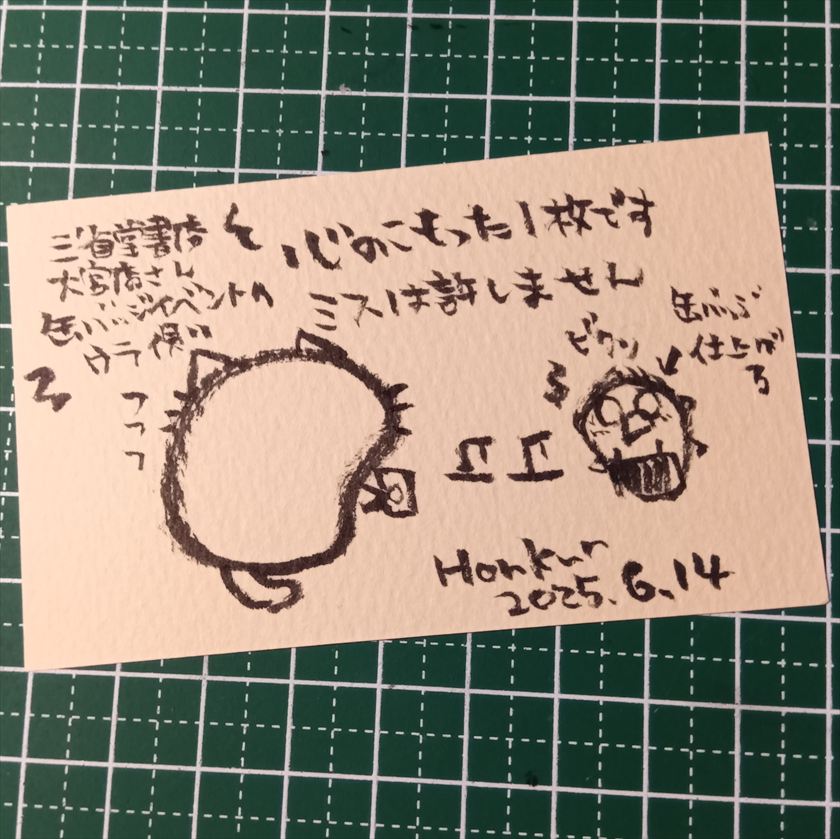 三省堂書店
大宮店さん
缶バッジイベントの
ウラ側
心のこもった1枚です
ミスは許しません
ビクッ
缶バッジ
仕上げ
る
フ
フ
フ
Honkur
2025.6.14